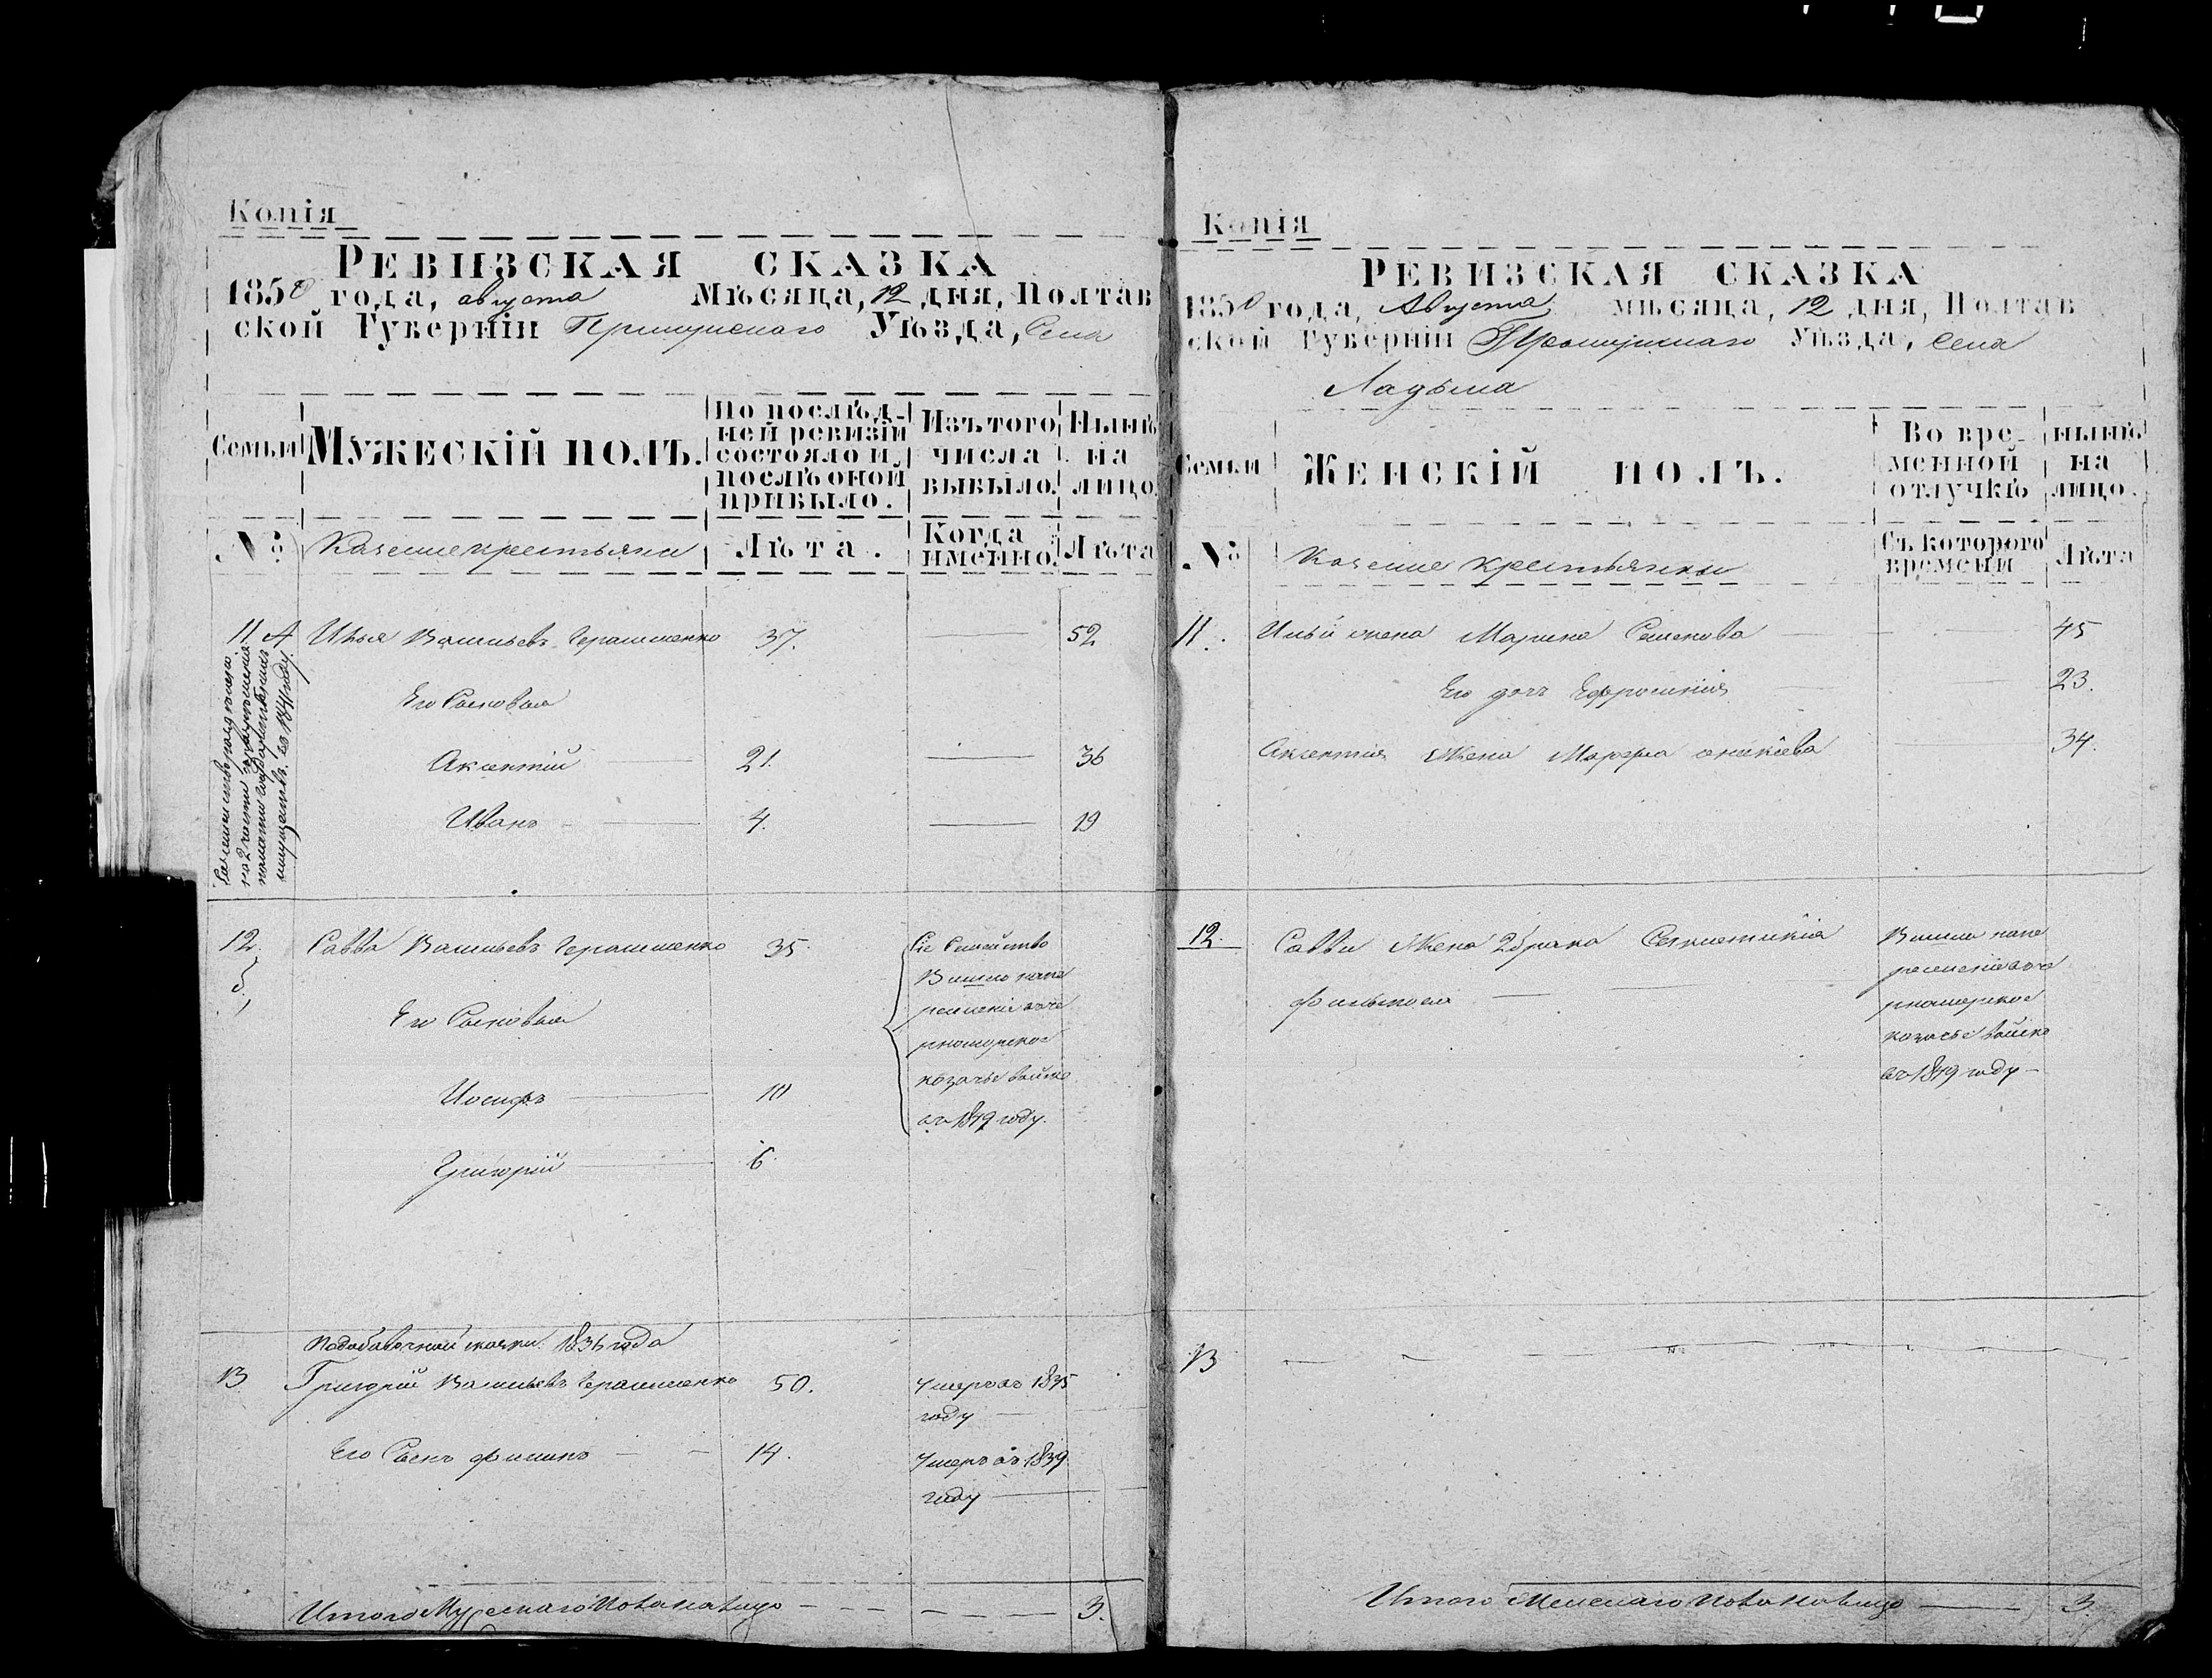 Копія
Ревизская сказка
1850 года, августа Мѣсяца, 12 дня, Полтав
ской Губерніи Прилуцкаго Уѣзда, Села
Семьи
Мужескій полъ.
По послѣд-
ней ревизіи
состояло и
послѣ оной
прибыло.
Изъ того
числа
выбыло.
Нынѣ
на
лицо.
№
Казенные крестьяне
Лѣта.
Когда
именно.
Лѣта
11. А Илья Васильевъ Герасименко 37. 52
Его Сыновья
Аксентій 21. 36
Иванъ 4. 19
12. Савва Васильевъ Герасименко 35.
б,
Его Сыновья
Іосифъ 10
Григорій 6
Сіе Семейство
Вышло на пе
реселеніе въ че
рноморское
козачье войско
въ 1849 году.
По добавочной сказки 1836 года
13 Григорій Васильевъ Герасименко 50. Умеръ въ 1835
году
Его Сынъ Филипъ 14. Умеръ въ 1839
году
Итого Мужескаго Пола на лицо 3.
Копія
Ревизская сказка
1850 года, Августа мѣсяца, 12 дня, Полтав
ской Губерніи Прилуцкаго Уѣзда, Села
Ладына
Семьи
Женскій полъ.
Во вре-
менной
отлучкѣ
нынѣ
на
лицо.
№
Казенные крестьянки
Съ котораго
времени
Лѣта
11. Ильи жена Марина Семенова 45
Его дочь Ефросинія 23.
Аксентія Жена Марфа 34.
12. Саввы Жена 2 брака
Вышла на пе
реселеніе въ че
рноморское
козачье войско
въ 1849 году
13
Итого Женскаго Пола на лицо 3.